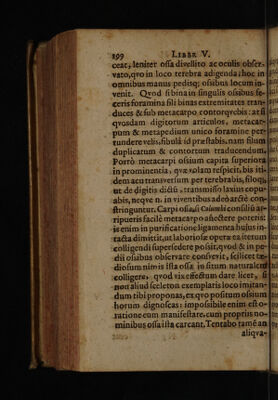 199 LIBER V.
ceat, leniter ossa divellito ac oculis obser-
vato, qvo in loco terebra adigenda: hoc in
omnibus manus pedisq; ossibus locum in-
venit. Qvod si bina in singulis ossibus fe-
ceris foramina fili binas extremitates tran-
duces & sub metacarpo contorqvebis: at si
qvosdam digitorum articulos, metacar-
pum & metapedium unico foramine per-
tundere velis, fibula id præstabis, nam filum
duplicatum & contortum traducendum.
Porrò metacarpi ossium capita superiora
in prominentia, qvæ volam respicit, bis iti-
dem acu transversum per terebrabis, filoq;
ut de digitis dictū, transmisso laxius copu-
abis, neqve n. in viventibus adeò arctè con-
stringuntur. Carpi ossa, si Columbi consiliū ar-
ripueris facilè metacarpo añectere poteris:
is enim in purificatione ligamenta hujus in-
tacta dimittit, ut laboriosæ operæ tæsterum
colligendi supersedere possit, qvod & in pe-
dii ossibus observare consvevit, scilicet tæ-
diosum nimis ista ossa in situm naturalem
colligere, qvod vix effectum dare licet, si
non aliud sceleton exemplaris loco imitan-
dum tibi proponas, ex qvo positum ossium
horum dignoscas: impossibile enim est o-
rationecum manifestare, cum propriis no-
minibus ossa ista careant. Tentabo tamē an
aliqva-